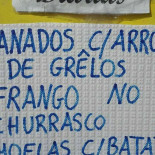 ANADOS C/ARRO
DE GRÊLOS
FRANGO NO
CHURRASCO
HOELAS C/BATA